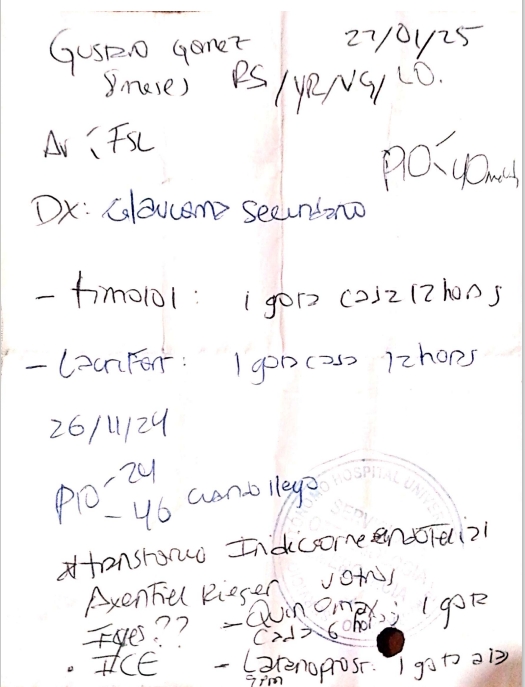 Gustavo Gomez 27/01/25
8 meses RS/YR/NG/LO.
AV < FSL
PIO < 40
DX: Glaucoma secundario
- timolol: 1 gota cada 12 horas
- Lacrifort: 1 gota cada 12 horas
26/11/24
PIO - 24
- 46 cuando llego
HOSPITAL
* transtorno Iridocorneendotelial
Axenfiel Rieger
- Quinomax: 1 gota
cada 6 horas
??
• ICE - Latanoprost: 1 gota al día
9pm